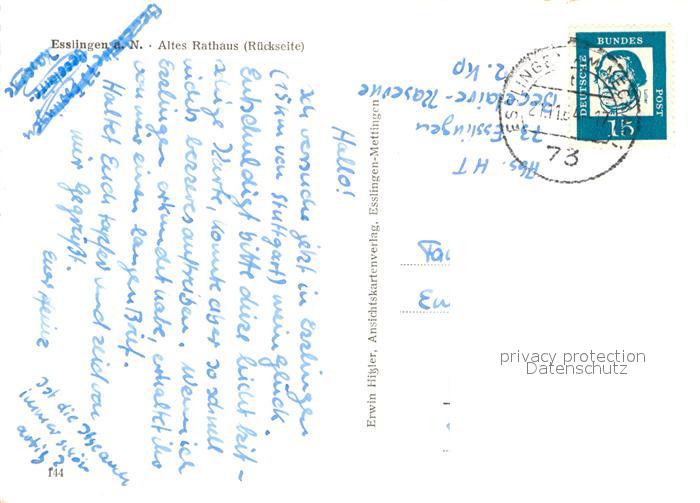 Esslingen a. N. · Altes Rathaus (Rückseite)
Hallo!
Ich versuche jetzt in Esslingen
(15 km von Stuttgart) mein Glück.
Entschuldigt bitte diese leicht kit-
schige Karte, konnte aber so schnell
nichts besseres auftreiben. Wenn ich
Esslingen erkundet habe, erhaltet ihr
von mir einen langen Brief.
Haltet Euch tapfer und seid von
mir gegrüßt.
Euer Heinz
Ist die
immer schön
artig?
144
Erwin Higler, Ansichtskartenverlag, Esslingen-Mettingen
Abs. HT
73 Esslingen
Becelaire-Kaserne
2. Kp
DEUTSCHE BUNDES POST
15
ESSLINGEN AM NECKAR
73
privacy protection
Datenschutz